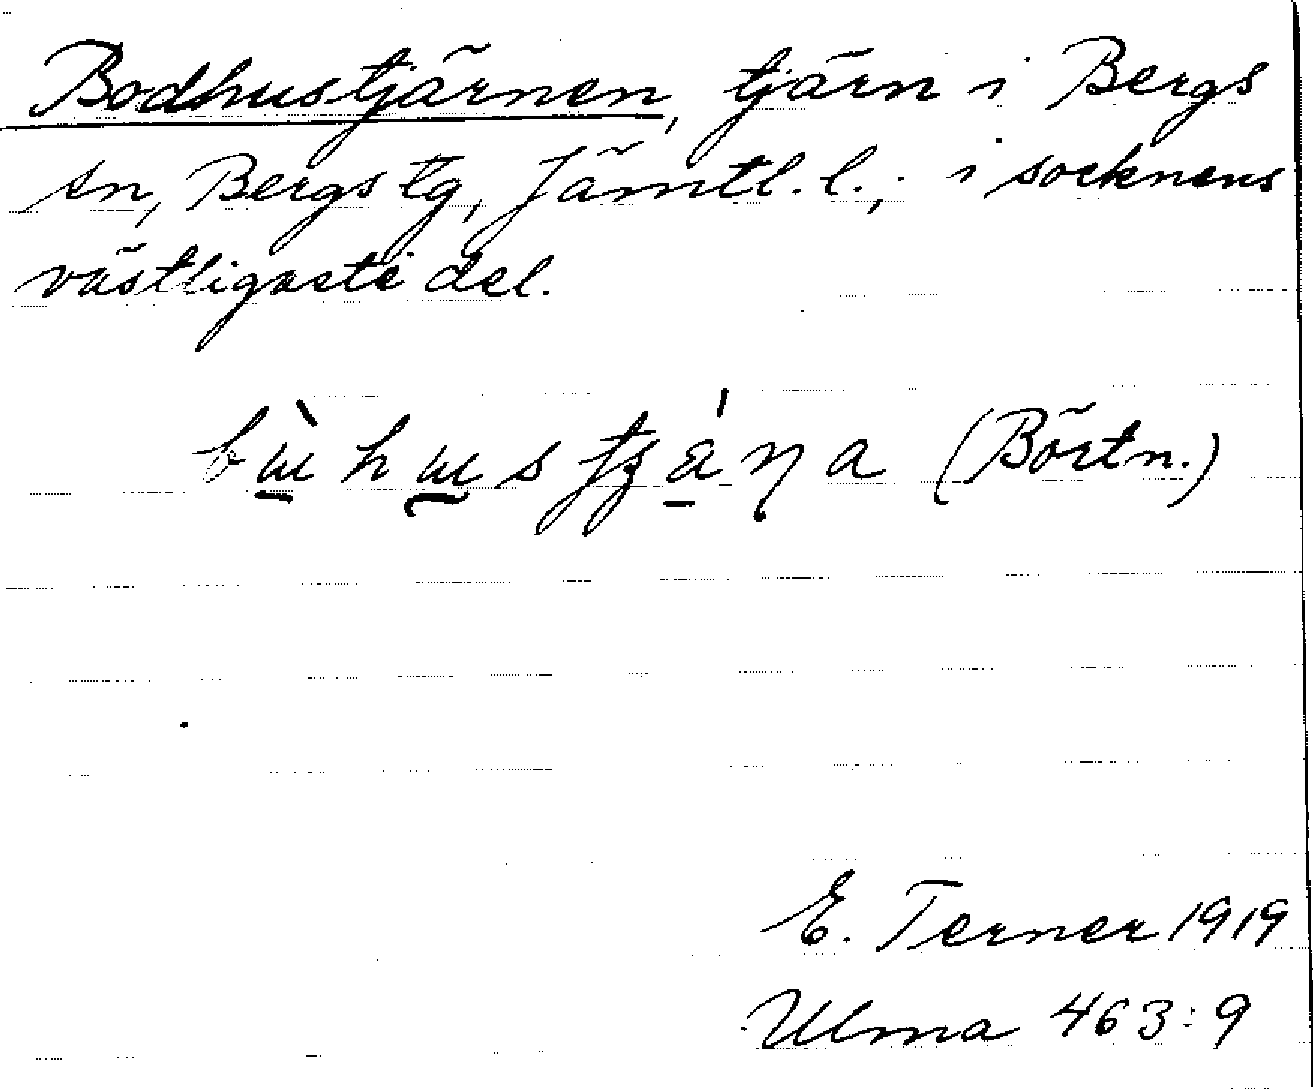 Bodhustjärnen, tjärn i Bergs
sn, Bergs tg, Jämtl. l.; i socknens
västligaste del.
(Börtn.)
E. Terner 1919
Ulma 463:9